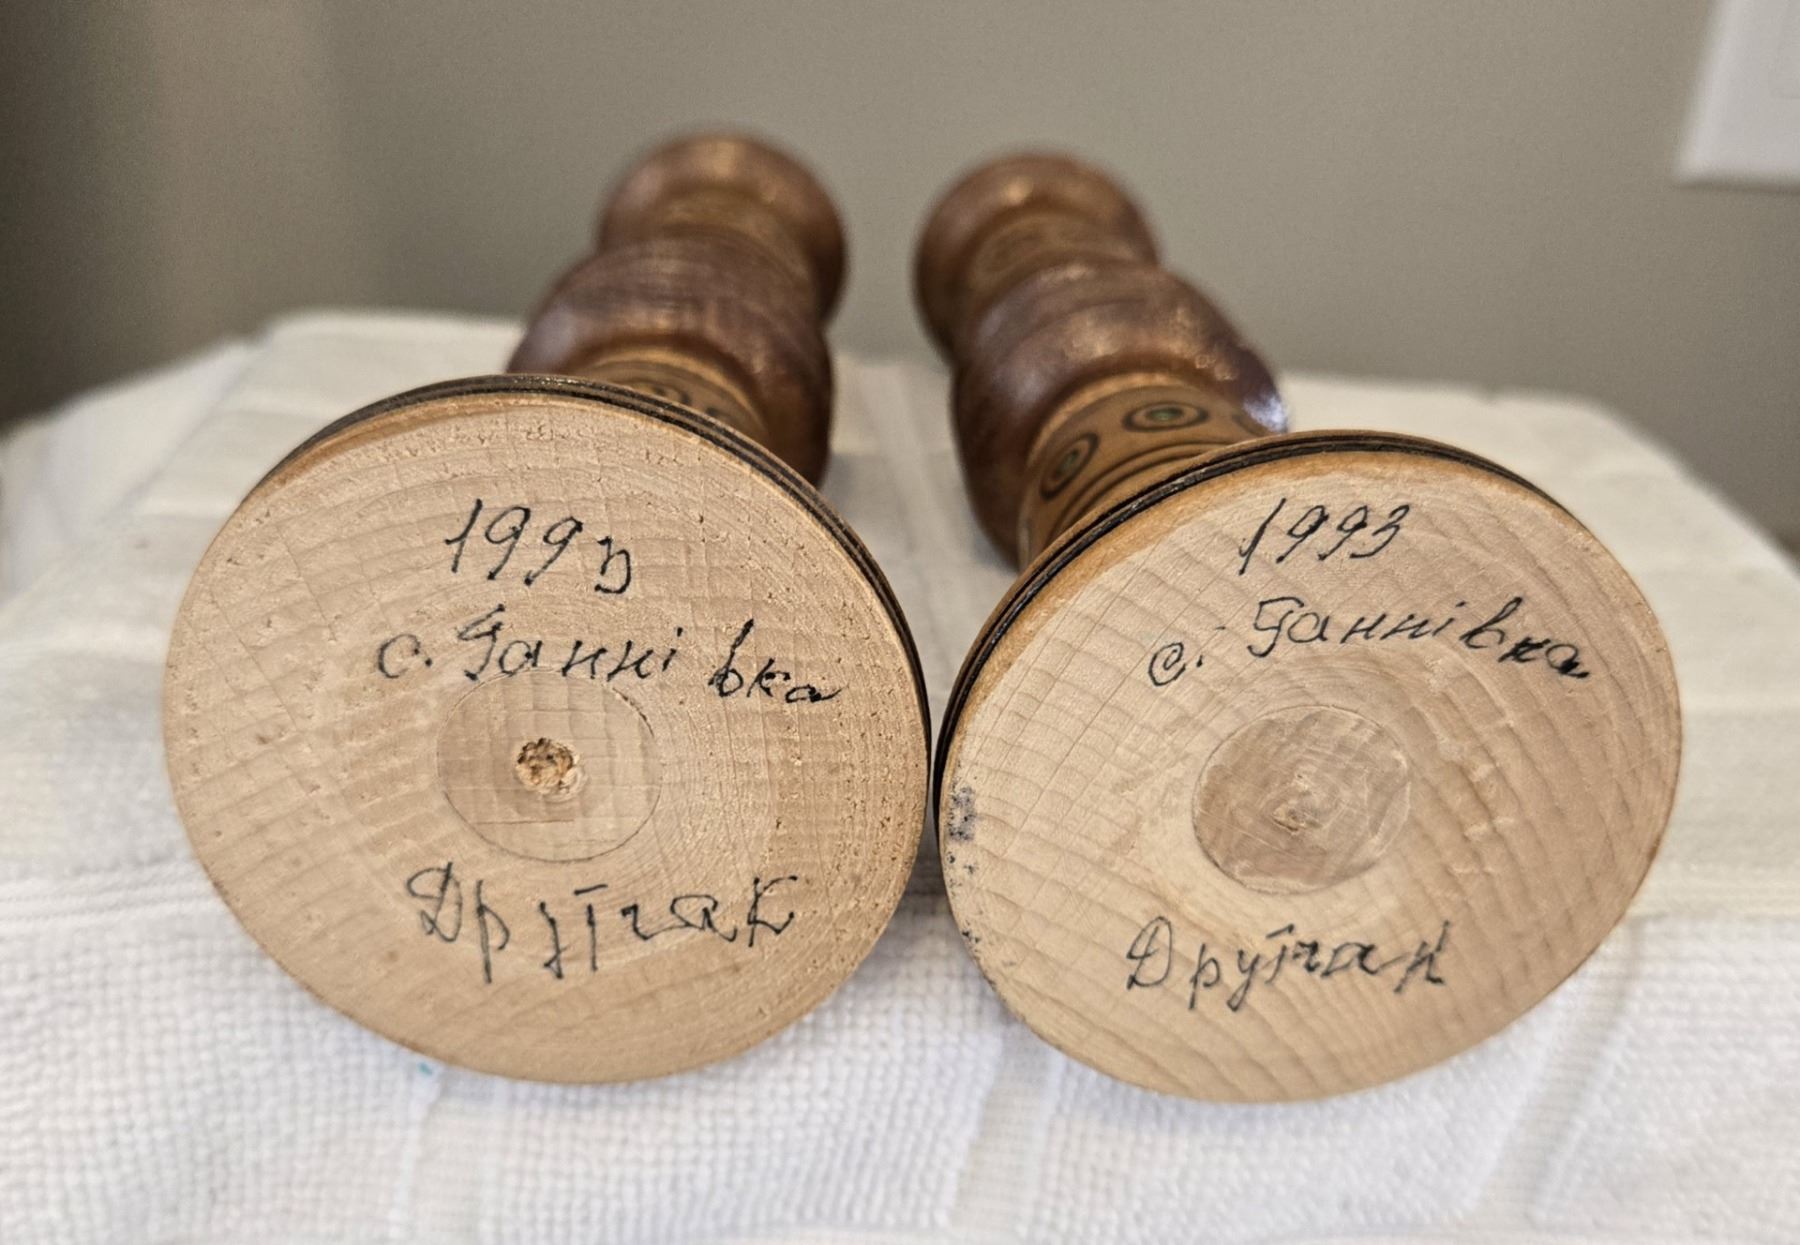 1993
с. Ганнівка
Друтчак
1993
с. Ганнівка
Друтчак